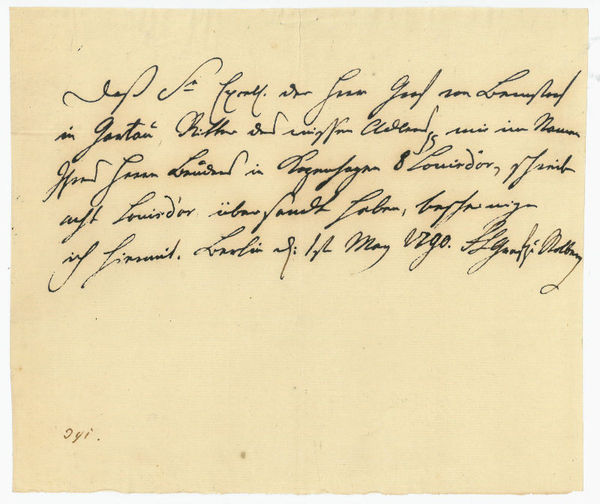 Daß Sr. Excell. der Herr Graf von Bernstorf
in Gartau Ritter des weissen Adlers, mir im Namen
Ihres Herrn Bruders in Kopenhagen 8 Louisd'or, schreib
acht Louisd'or übersandt haben, bescheinige
ich hiermit. Berlin d: 1st May 1790. FLGraf z: Stolberg
391.